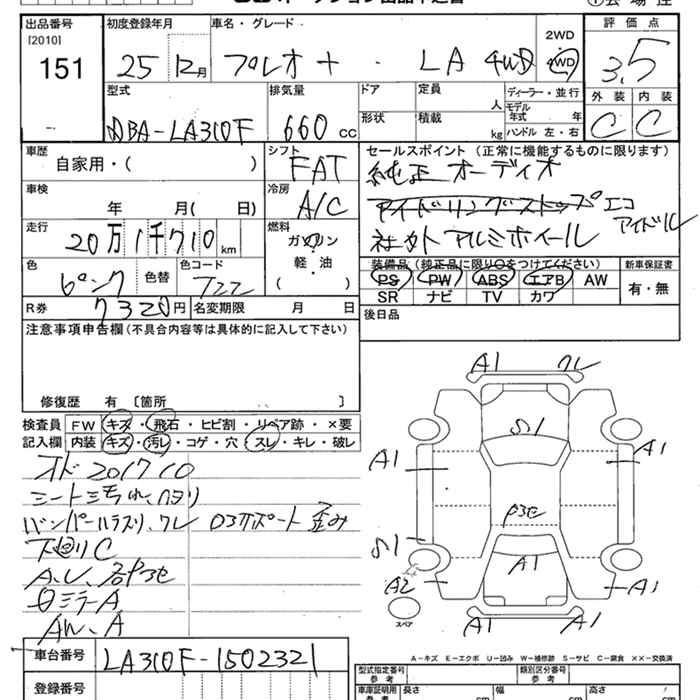 出品番号
[2010]
151
初度登録年月
25 12月
車名・グレード
プレオ+ ・ LA 4WD
2WD
4WD
評価点
3.5
外装 内装
C C
型式
DBA-LA310F
排気量
660 cc
ドア
定員
人
形状
積載
kg
ディーラー・並行
モデル年式 年
ハンドル 左・右
車歴
自家用・( )
シフト
FAT
セールスポイント (正常に機能するものに限ります)
純正オーディオ
アイドリングストップ エコアイドル
社外アルミホイール
車検
年 月( 日)
冷房
A/C
走行
20万1千710km
燃料
ガソリン
軽・油
( )
色
ピンク
色替
色コード
T22
装備品(純正品に限り○をつけてください)
PS PW ABS エアB AW
SR ナビ TV カワ
新車保証書
有・無
R券 7320円
名変期限 月 日
後日品
注意事項申告欄(不具合内容等は具体的に記入して下さい)
修復歴 有 〔箇所 〕
検査員 FW キズ・飛石・ヒビ割・リペア跡・×要
記入欄 内装 キズ・汚レ・コゲ・穴・スレ・キレ・破レ
オド201710
シート
バンパーウラスリ、ワレ
歪み
下廻りC
AW、A
A1 ワレ
S1
A1 A1
S1
A1
A2 A1
A1 A1
スペア
A-キズ E-エクボ U-凹み W-補修跡 S-サビ C-腐食 ××-交換済
車台番号
LA310F-1502321
登録番号
型式指定番号
参考
類別区分番号
参考
車庫証明用
参考
長さ cm
幅 cm
高さ cm